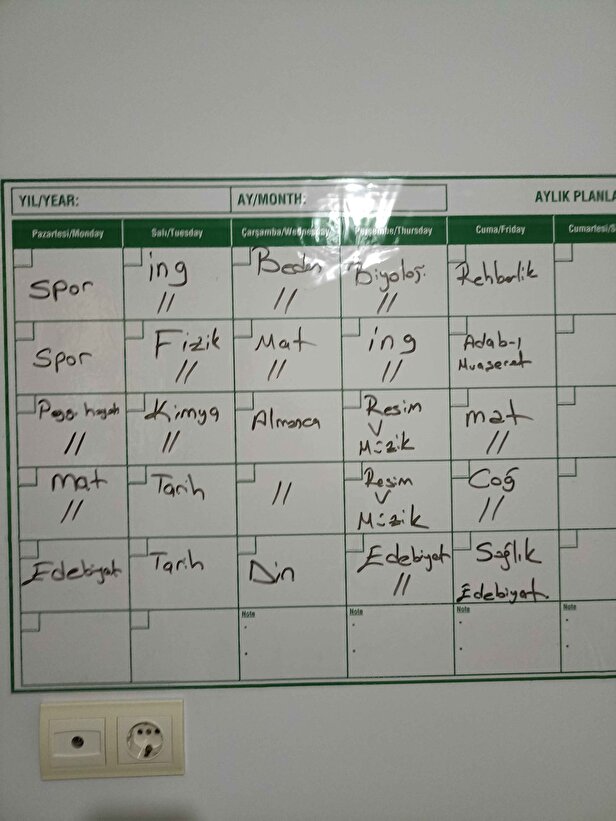 YIL/YEAR:
AY/MONTH:
AYLIK PLANLA
Pazartesi/Monday
Salı/Tuesday
Çarşamba/Wednesday
Perşembe/Thursday
Cuma/Friday
Cumartesi/S
Spor
ing //
Beden //
Biyoloj. //
Rehberlik
Spor
Fizik //
Mat //
ing //
Adab-ı
Muaşeret
//
Kimya //
Almanca
Resim
v
Müzik
mat //
mat //
Tarih
//
Resim
v
Müzik
Coğ //
Edebiyat
Tarih
Din
Edebiyat //
Sağlık
Edebiyat
Note
Note
Note
Note